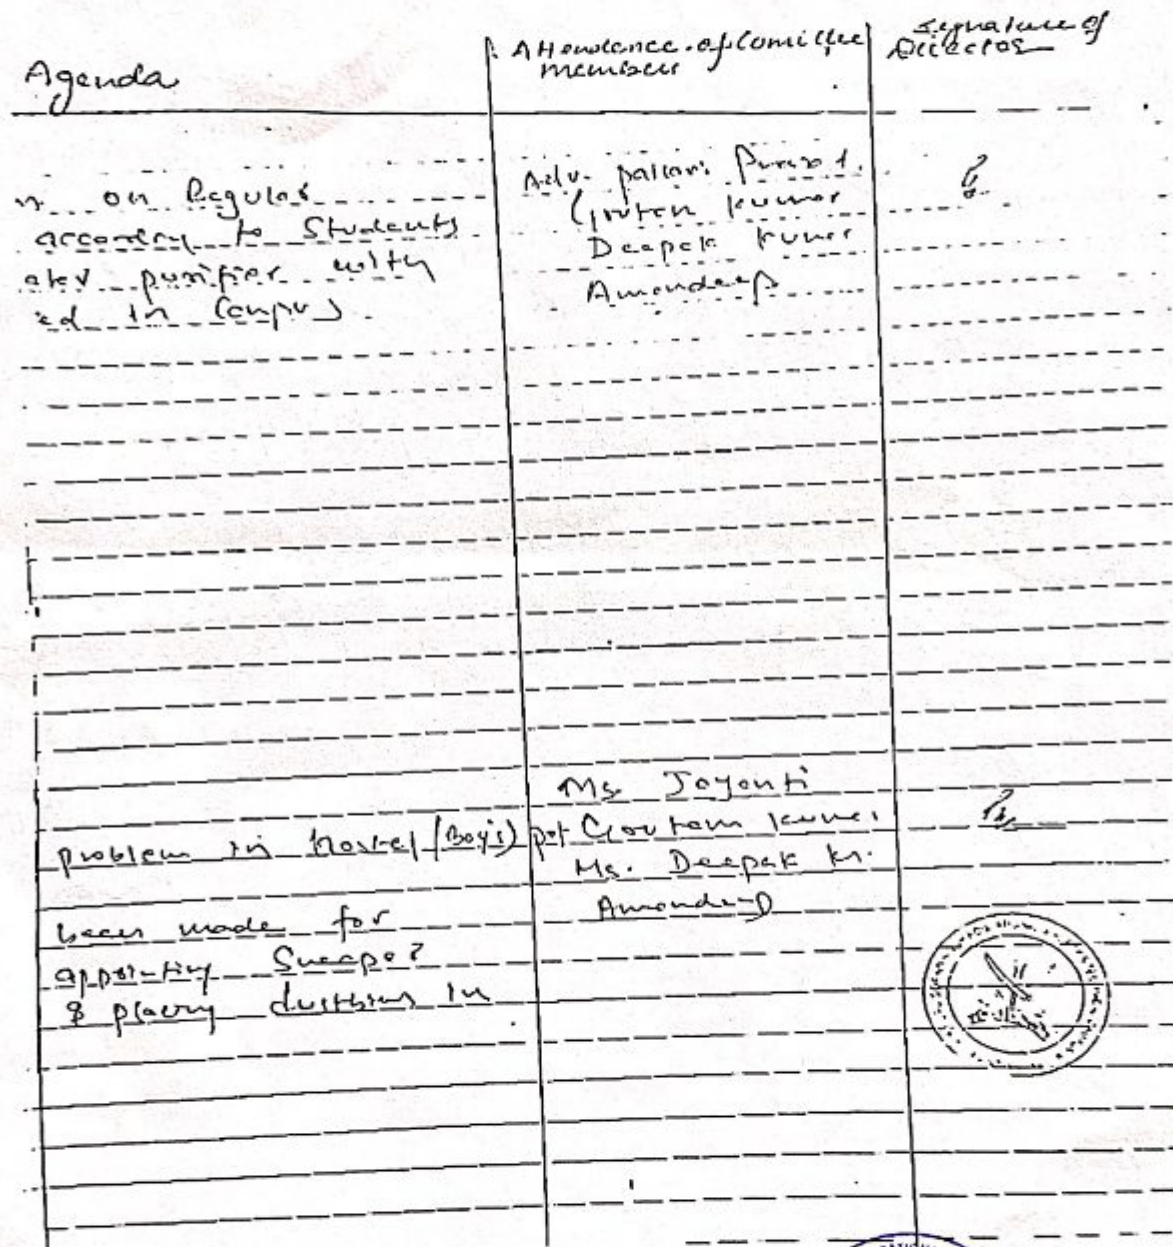 Agenda
Attendance of Comittee
members
Signature of
Director
on Regular
according to Students
purifier with
ed in
Adv. Pallavi
Goutam kumar
Deepak kumar
Amandeep
problem in hostel (Boy's)
been made for
appointing Sweeper
& placing dustbins in
Ms Jayanti
Goutam kumar
Ms. Deepak kr.
Amandeep